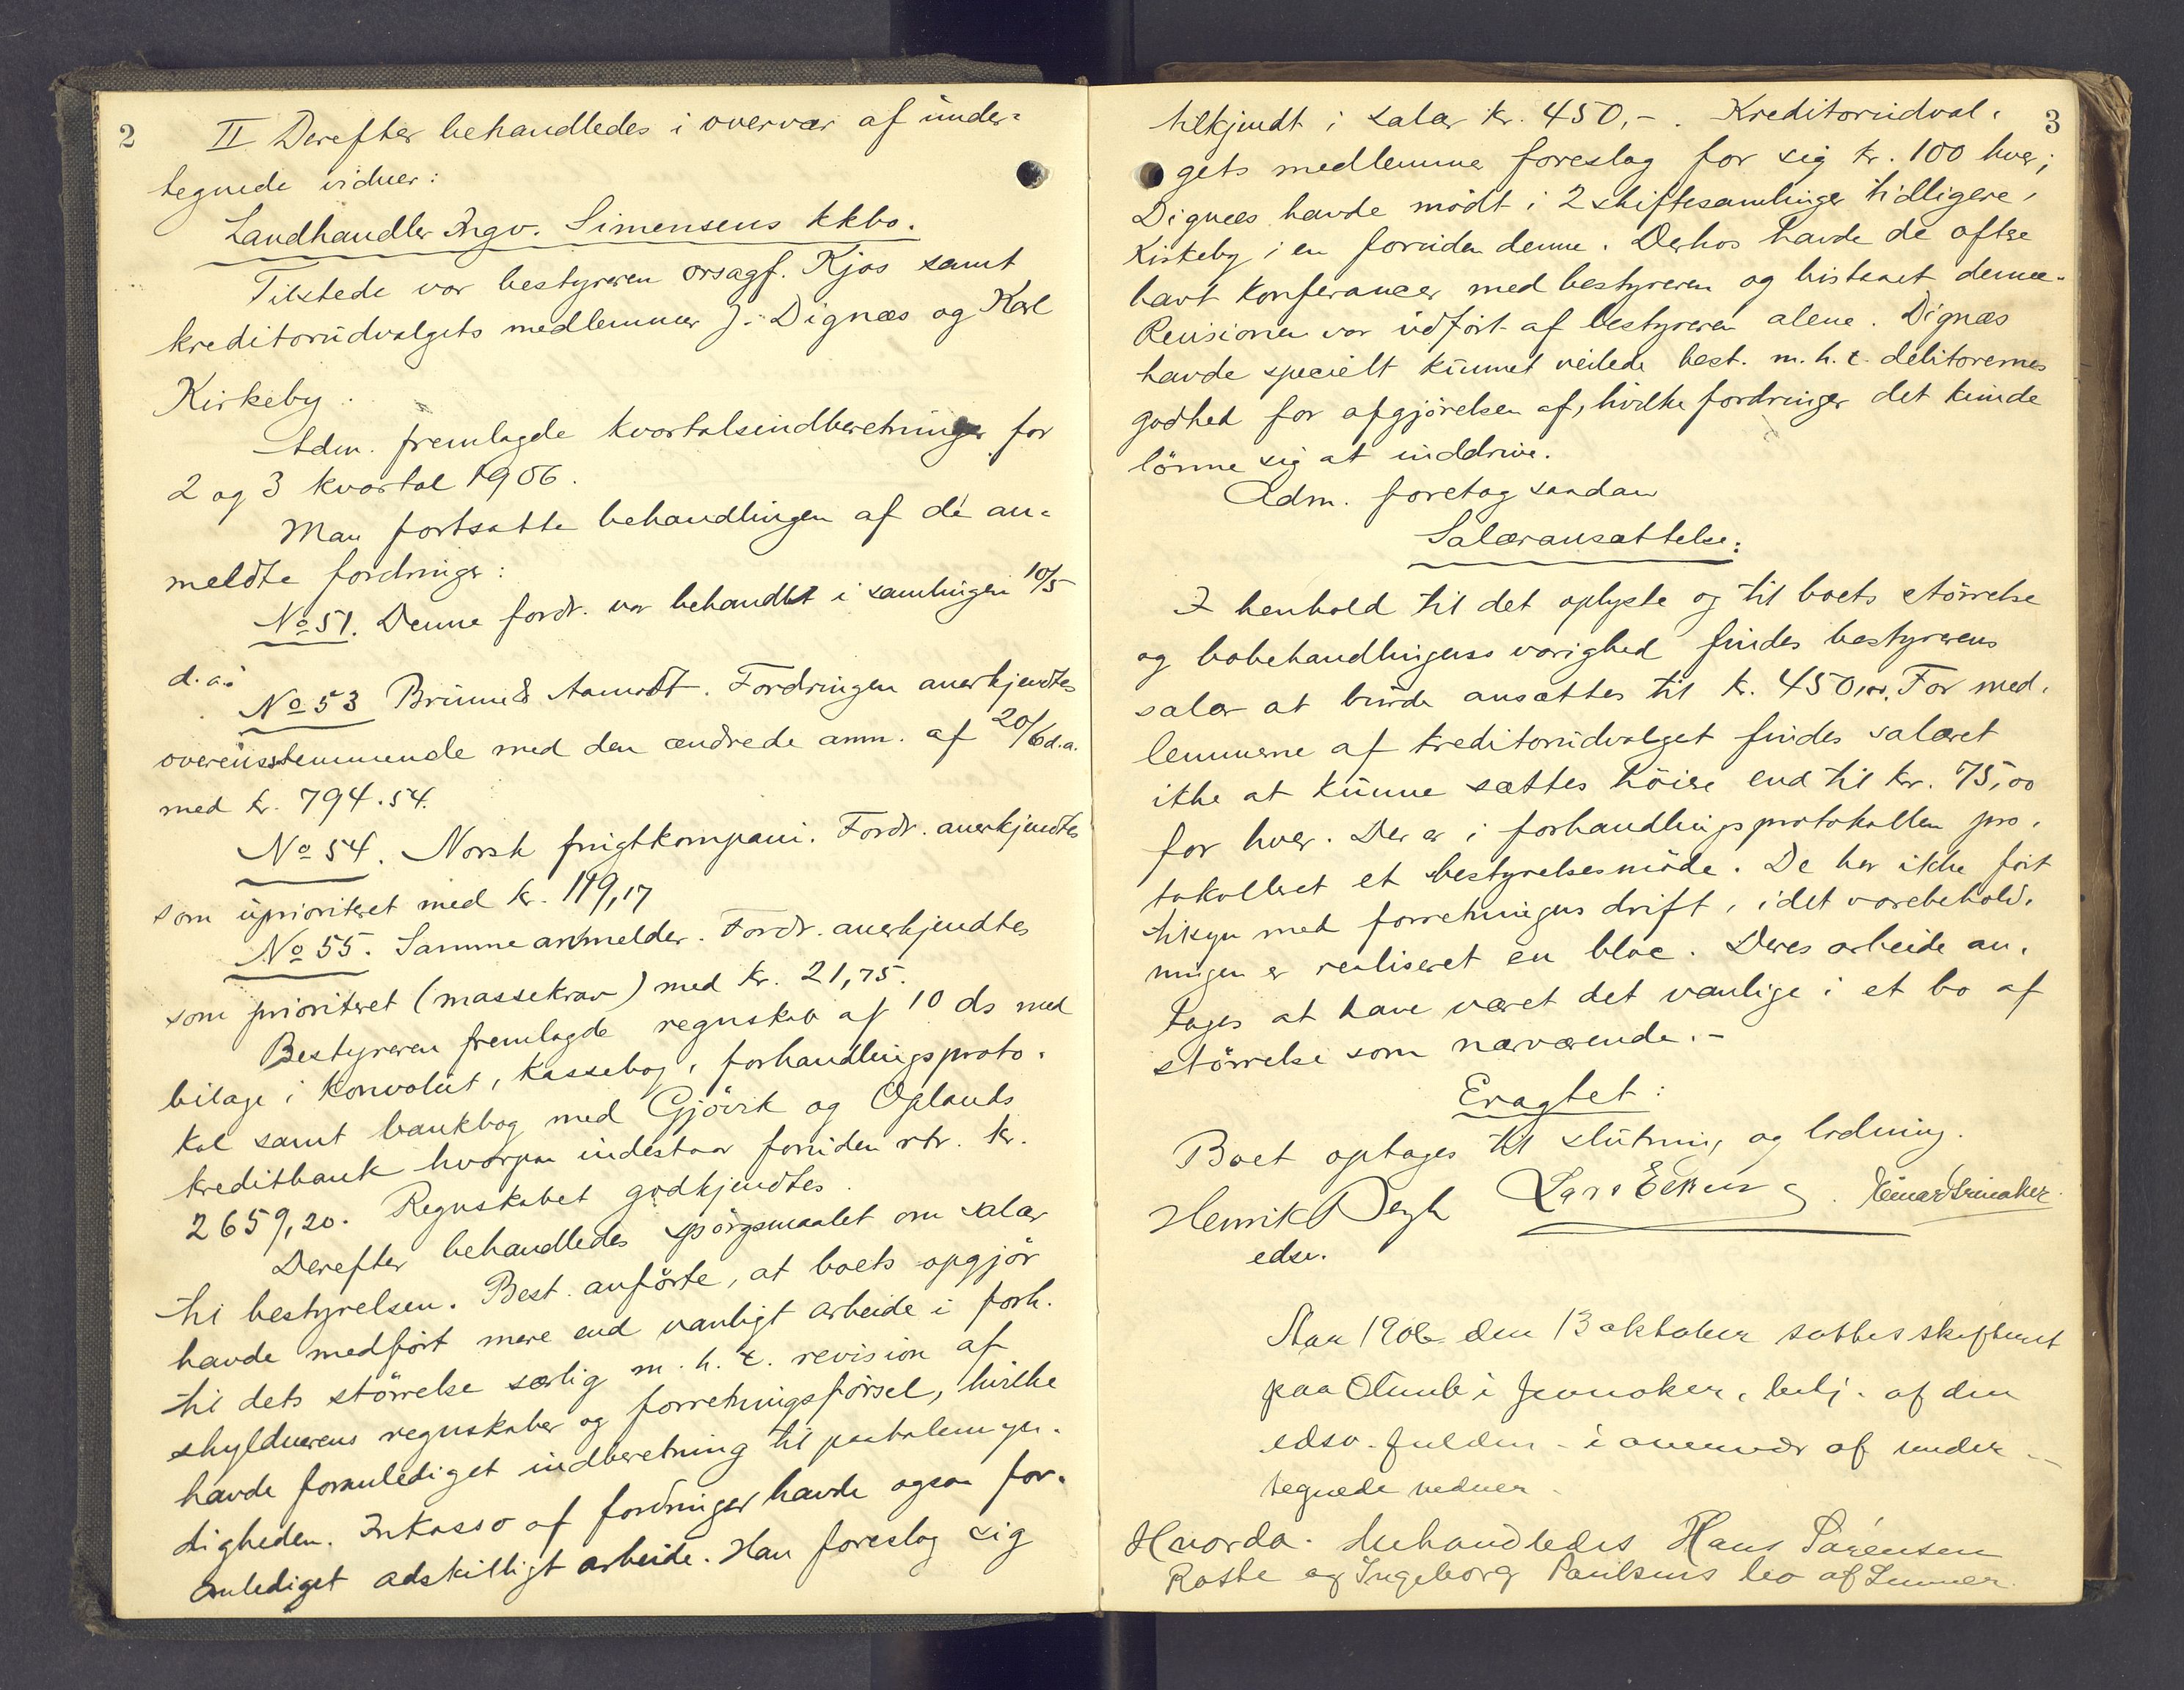 2
II Derefter behandledes i overvær af under-
tegnede vidner:
Landhandler Ingv. Simensens kkbo.
Tilstede var bestyreren orsagf. Kjos samt
kreditorudvalgets medlemmer J. Dignæs og Karl
Kirkeby.
Adm. fremlagde kvartalsindberetninger for
2 og 3 kvartal 1906.
Man fortsatte behandlingen af de an-
meldte fordringer:
No 51. Denne fordr. var behandlet i samlingen 10/5
d.a.
No 53 Brunn & Aamodt. Fordringen anerkjendtes
overensstemmende med den ændrede anm. af 20/6 d.a.
med kr. 794.54.
No 54. Norsk frugtkompani. Fordr. anerkjendtes
som uprioriteret med kr. 119,17
No 55. Samme anmelder. Fordr. anerkjendtes
som prioriteret (massekrav) med kr. 21,75.
Bestyreren fremlagde regnskab af 10 ds med
bilage i konvolut, kassebog, forhandlingsproto-
kol samt bankbog med Gjøvik og Oplands
kreditbank hvorpaa indestaar foruden rtr. kr.
2659,20. Regnskabet godkjendtes.
Derefter behandledes spörgsmaalet om salær
til bestyrelsen. Best. anförte, at boets opgjör
havde medfört mere end vanligt arbeide i forh.
til dets störrelse særlig m.h.t. revision af
skyldnerens regnskaber og forretningsförsel, hvilke
havde foranlediget indberetning til paatalemyn-
digheden. Inkasso af fordringer havde ogsaa for-
anlediget adskilligt arbeide. Han foreslog sig
3
tilkjendt i salær kr. 450,-. Kreditorudval-
gets medlemmer foreslog for sig kr. 100 hver;
Dignæs havde mödt i 2 skiftesamlinger tidligere,
Kirkeby i en foruden denne. Derhos havde de oftere
havt konferancer med bestyreren og bistaaet denne.
Revisionen var udfört af bestyreren alene. Dignæs
havde specielt kunnet veilede best. m.h.t. debitorernes
godhed for afgjörelsen af, hvilke fordringer det kunde
lönne sig at inddrive.
Adm. foretog saadan
Salæransættelse:
I henhold til det oplyste og til boets störrelse
og bobehandlingens varighed findes bestyrerens
salær at burde ansættes til kr. 450,00. For med-
lemmerne af kreditorudvalget findes salæret
ikke at kunne sættes höiere end til kr. 75,00
for hver. Der er i forhandlingsprotokollen pro-
tokolleret et bestyrelsesmöde. De har ikke fört
tilsyn med forretningens drift, idet varebehold-
ningen er realiseret en bloc. Deres arbeide an-
tages at have været det vanlige i et bo af
störrelse som nærværende.-
Eragtet:
Boet optages til slutning og lodning.
Henrik Degh Lars Eknes Einar Grinaker
edsv.
Aar 1906 den 13 oktober sattes skifteret
paa i Jevnaker, betj. af den
edsv. fuldm. i overvær af under-
tegnede vidner.
Hvorda. behandledes Hans Sørensen
Roste og Ingeborg Paulsens bo af Lunner.